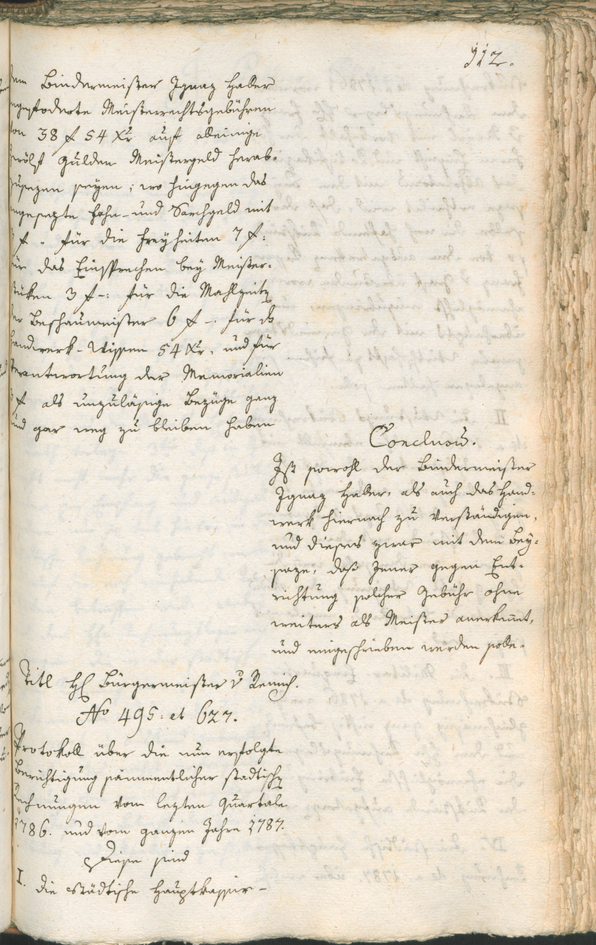 112.
dem Bindermeister Ignaz Haber
angefoderte Meisterrechtsgebühren
von 38 f 54 Xr auf alleinige
zwölf Gulden Meistergeld herab-
zusezen seyen; wo hingegen das
angesezte und Sarchgeld mit
f. für die Freyheiten 7 f:
für das Einsprechen bey Meister-
stüken 3 f: für die Mahlzeit
der Beschaumeister 6 f, für das
Handwerk-Wissen 54 Xr, und für
Verantwortung der Memorialien
f als unzuläsige Bezüge ganz
und gar weg zu bleiben haben
Conclusum.
Ist sowohl der Bindermeister
Ignaz Haber, als auch das Hand-
werk hiernach zu verständigen,
und dieses zwar mit dem Bey-
saze, daß Jener gegen Ent-
richtung solcher Gebühr ohne
weiters als Meister anerkennt,
und eingeschrieben werden solle.
Titl H Bürgermeister v Remich.
No 495. et 627.
Protokoll über die nun erfolgte
Berichtigung sammentlicher städtischer
Rechnungen vom lezten Quartale
1786. und vom ganzen Jahre 1787.
Diese sind
I. die städtische Hauptkassier-